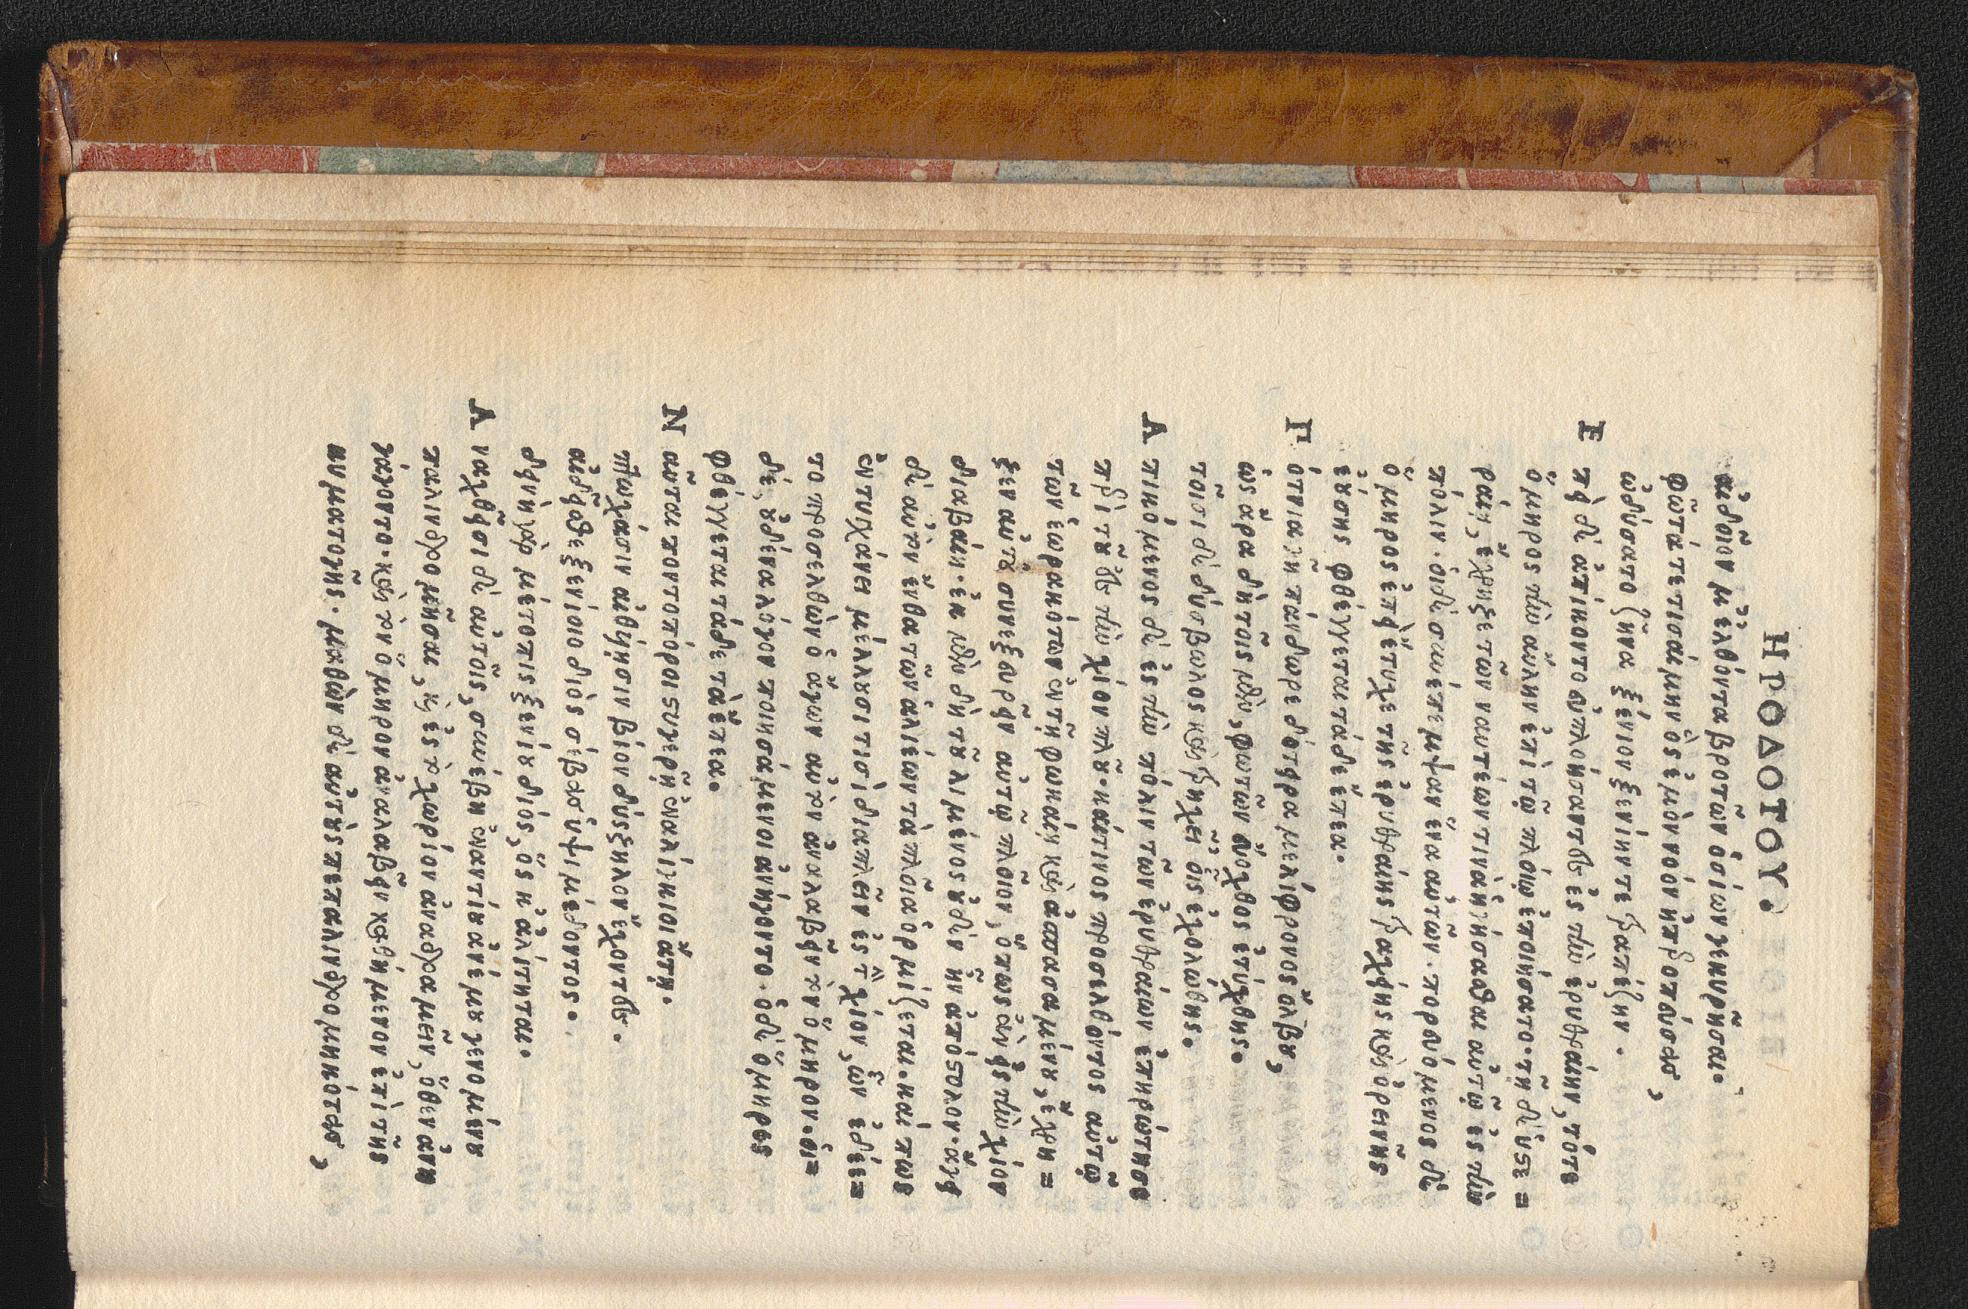 ΗΡΟΔΟΤΟΥ.
αἰδοῖον μ᾽ ἐλθόντα βροτῶν ὁσίων γε κυρῆσαι.
φῶτά τε τισαίμην ὃς ἐμὸν νόον ἠπεροπεύσας,
ὠδύσατο ζῆνα ξένιον ξεινίην τε τραπέζην.
Ἐπεὶ δ᾽ ἀπίκοντο εὐπλοήσαντες ἐς τὴν ἐρυθραίην, τότε
ὅμηρος τὴν αὔλην ἐπὶ τῷ πλοίῳ ἐποιήσατο. τῇ δ᾽ ὑστε=
ραίῃ, ἔχρηξε τῶν ναυτέων τινὰ ἡγήσασθαι αὐτῷ ἐς τὴν
πόλιν. οἱ δὲ συνέπεμψαν ἕνα αὐτῶν. πορευόμενος δὲ
ὅμηρος ἐπεὶ ἔτυχε τῆς ἐρυθραίης τραχείης καὶ ὀρεινῆς
ἐούσης φθέγγεται τάδε ἔπεα.
Πότνια γῆ πάνδωρε δότειρα μελίφρονος ὄλβου,
ὡς ἄρα δὴ τοῖς μὲν, φωτῶν εὔοχθος ἐτύχθης.
τοῖσι δὲ δύσβωλος καὶ τρηχεῖ οἷς ἐχολώθης.
Ἀπικόμενος δὲ ἐς τὴν πόλιν τῶν ἐρυθραίων ἐπηρώτησε
περὶ τοῦ ἐς τὴν χίον πλοῦ. καί τινος προσελθόντος αὐτῷ
τῶν ἑωρακότων ἐν τῇ φωκαίῃ καὶ ἀσπασαμένου, ἔχρη=
ξεν αὐτοῦ συνεξευρεῖν αὐτῷ πλοῖον, ὅπως ἐν εἰς τὴν χίον
διαβαίη. ἐκ μὲν δὴ τοῦ λιμένος οὐδὲν ἦν ἀπόστολον. ἄγει
δὲ αὐτὸν ἔνθα τῶν ἁλιέων τὰ πλοῖα ὁρμίζεται. καί πως
ἐντυγχάνει μέλλουσί τισι διαπλεῖν ἐς τὴν χίον, ὧν ἐδέε=
το προσελθὼν ὁ ἄγων αὐτὸν ἀναλαβεῖν τὸν ὅμηρον. οἱ=
δὲ, οὐδένα λόγον ποιησάμενοι ἀνήγοντο. ὁ δὲ ὅμηρος
φθέγγεται τάδε τὰ ἔπεα.
Ναῦται ποντοπόροι στυγερῇ ἐναλίγκιοι ἄτῃ.
πτωχάσιν αἰθύησιν βίον δύσξηλον ἔχοντες.
αἰδεῖσθε ξενίοιο διὸς σέβας ὑψιμέδοντος.
δεινὴ γὰρ μέτοπις ξενίου διός, ὅς κ᾽ ἀλίτηται.
Ἀναχθεῖσι δὲ αὐτοῖς, συνέβη ἐναντίου ἀνέμου γενομένου
παλινδρομῆσαι, καὶ ἐς τὸ χωρίον ἀναδραμεῖν, ὅθεν ἀνη
γάγοντο. καὶ τὸν ὅμηρον ἀναλαβεῖν καθήμενον ἐπὶ τῆς
κυματογῆς. μαθὼν δὲ αὐτοὺς πεπαλινδρομηκότας,